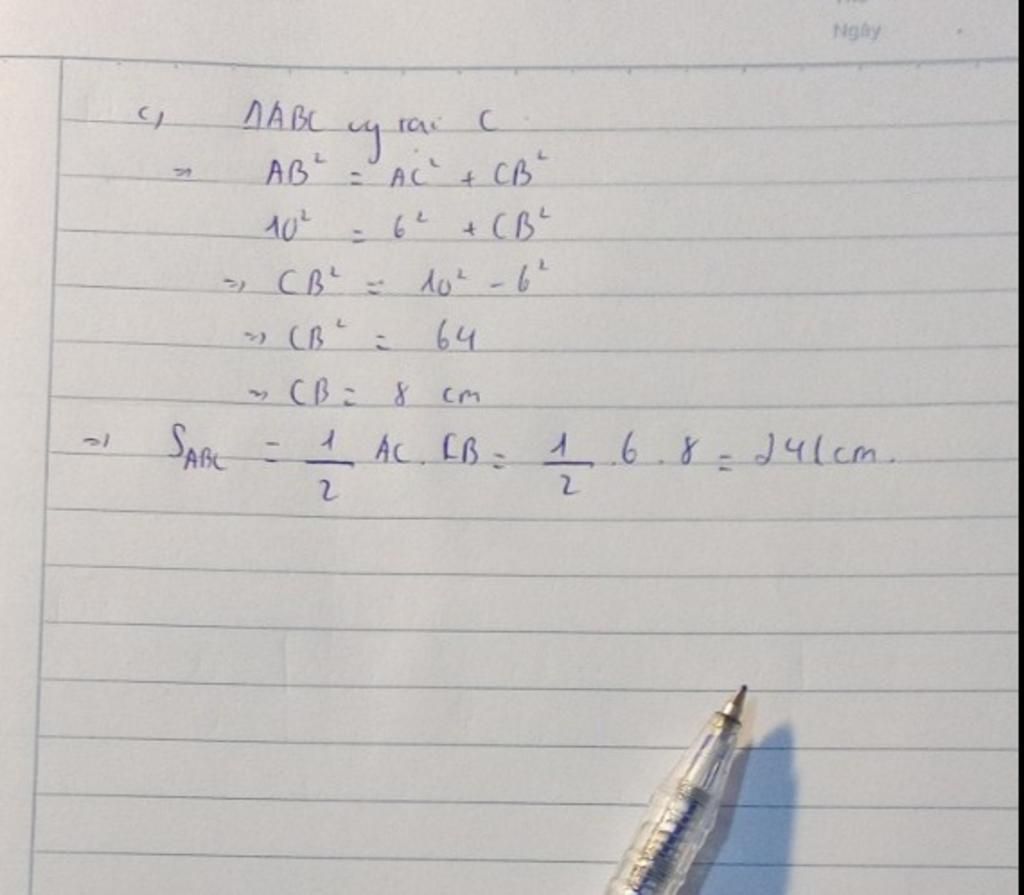 Ngày
c, ΔABC vg tại C
=> AB² = AC² + CB²
10² = 6² + CB²
=> CB² = 10² - 6²
=> CB² = 64
=> CB = 8 cm
=> S_ABC = 1/2 AC . CB = 1/2 . 6 . 8 = 24(cm.